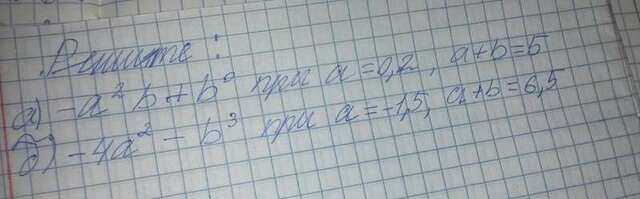 Решите:
а) -a²b+b⁰ при a=0,2, a+b=5
б) -4a² - b³ при a=-1,5, a+b=6,5